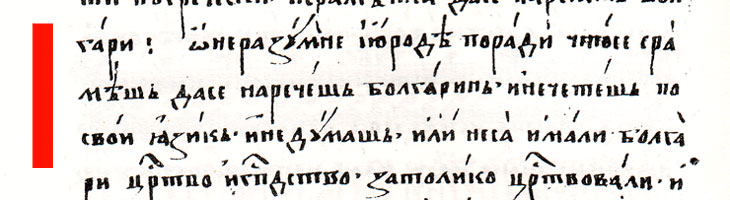 гари : ѽ неразꙋ́мне їюро́дѣ пора́ди что́се сра́
мѣ́шь да́се наре́чешь болга́ринь· инечете́шь по
свои́ ꙗзи́кь· инедꙋ́машь· или́ неса́ има́ли болга́
ри цр҇тво игп҇дство· затоли́ко цр҇твова́ли· и